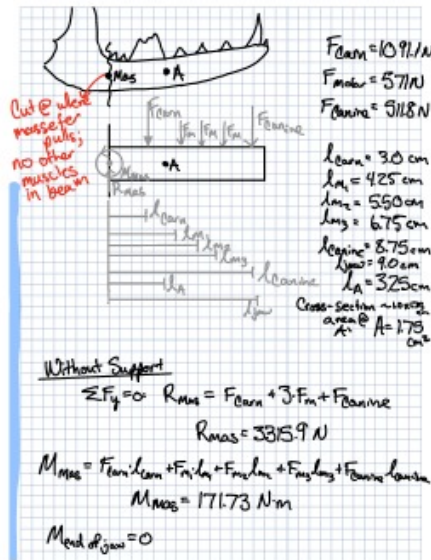 Mas
A
Cut @ where
masseter
pulls;
no other
muscles
in beam
F_carn = 1091.1 N
F_molar = 571 N
F_canine = 511.8 N
F_carn
F_m F_m F_m
F_canine
M_mas
A
R_mas
l_carn
l_m1
l_m2
l_m3
l_canine
l_A
l_jaw
l_carn = 3.0 cm
l_m1 = 4.25 cm
l_m2 = 5.50 cm
l_m3 = 6.75 cm
l_canine = 8.75 cm
l_jaw = 9.0 cm
l_A = 3.25 cm
Cross-section
area @
A: A = 1.75 cm²
Without Support
ΣF_y = 0: R_mas = F_carn + 3·F_m + F_canine
R_mas = 3315.9 N
M_mas = F_carn·l_carn + F_m·l_m1 + F_m2·l_m2 + F_m3·l_m3 + F_canine·l_canine
M_mas = 171.73 N·m
M_end of jaw = 0